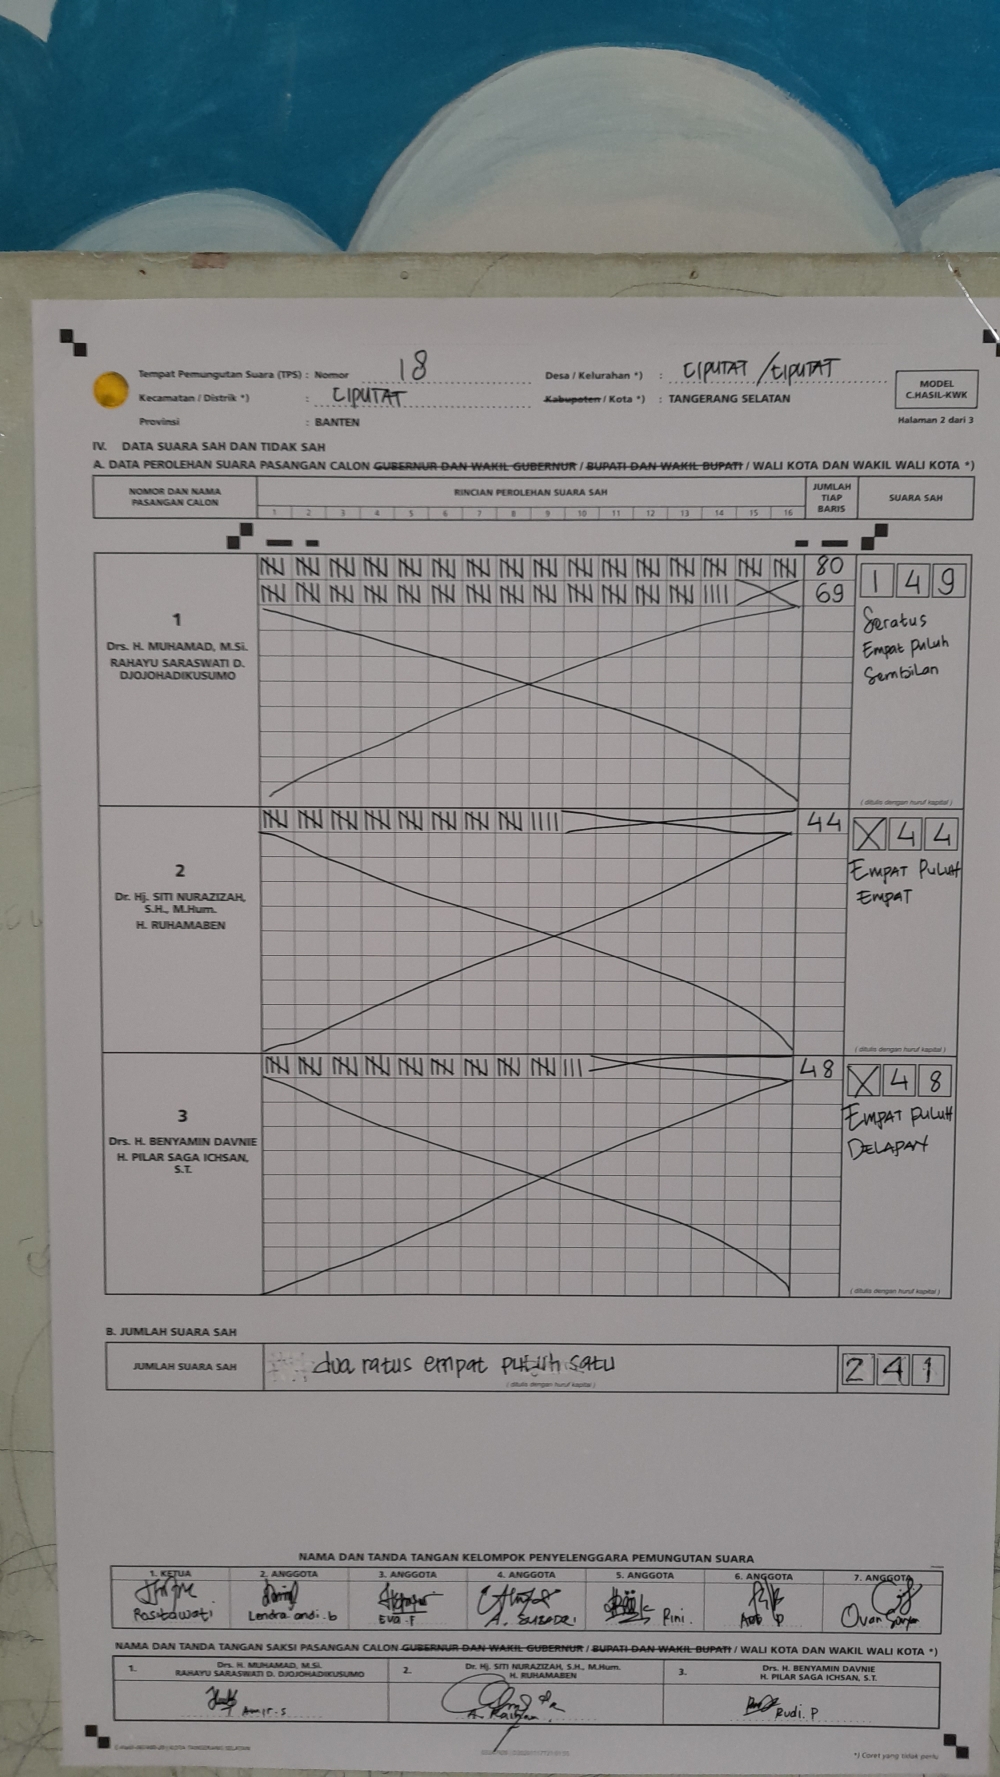 Tempat Pemungutan Suara (TPS) : Nomor 18 Desa / Kelurahan *) : CIPUTAT / CIPUTAT
Kecamatan / Distrik *) : CIPUTAT Kabupaten / Kota *) : TANGERANG SELATAN
Provinsi : BANTEN
MODEL
C.HASIL-KWK
Halaman 2 dari 3
IV. DATA SUARA SAH DAN TIDAK SAH
A. DATA PEROLEHAN SUARA PASANGAN CALON GUBERNUR DAN WAKIL GUBERNUR / BUPATI DAN WAKIL BUPATI / WALI KOTA DAN WAKIL WALI KOTA *)
NOMOR DAN NAMA PASANGAN CALON
RINCIAN PEROLEHAN SUARA SAH
1 2 3 4 5 6 7 8 9 10 11 12 13 14 15 16
JUMLAH TIAP BARIS
SUARA SAH
1
Drs. H. MUHAMAD, M.Si.
RAHAYU SARASWATI D.
DJOJOHADIKUSUMO
80
69
1 4 9
Seratus
Empat puluh
Sembilan
( ditulis dengan huruf kapital )
2
Dr. Hj. SITI NURAZIZAH,
S.H., M.Hum.
H. RUHAMABEN
44
X 4 4
EMPAT PULUH
EMPAT
( ditulis dengan huruf kapital )
3
Drs. H. BENYAMIN DAVNIE
H. PILAR SAGA ICHSAN,
S.T.
48
X 4 8
EMPAT PULUH
DELAPAN
( ditulis dengan huruf kapital )
B. JUMLAH SUARA SAH
JUMLAH SUARA SAH dua ratus empat puluh satu 2 4 1
( ditulis dengan huruf kapital )
NAMA DAN TANDA TANGAN KELOMPOK PENYELENGGARA PEMUNGUTAN SUARA
1. KETUA 2. ANGGOTA 3. ANGGOTA 4. ANGGOTA 5. ANGGOTA 6. ANGGOTA 7. ANGGOTA
Rositawati Lendra andi.b Eva.F Rini.
NAMA DAN TANDA TANGAN SAKSI PASANGAN CALON GUBERNUR DAN WAKIL GUBERNUR / BUPATI DAN WAKIL BUPATI / WALI KOTA DAN WAKIL WALI KOTA *)
1. Drs. H. MUHAMAD, M.Si.
RAHAYU SARASWATI D. DJOJOHADIKUSUMO
Amir.s
2. Dr. Hj. SITI NURAZIZAH, S.H., M.Hum.
H. RUHAMABEN
3. Drs. H. BENYAMIN DAVNIE
H. PILAR SAGA ICHSAN, S.T.
Rudi.P
*) Coret yang tidak perlu